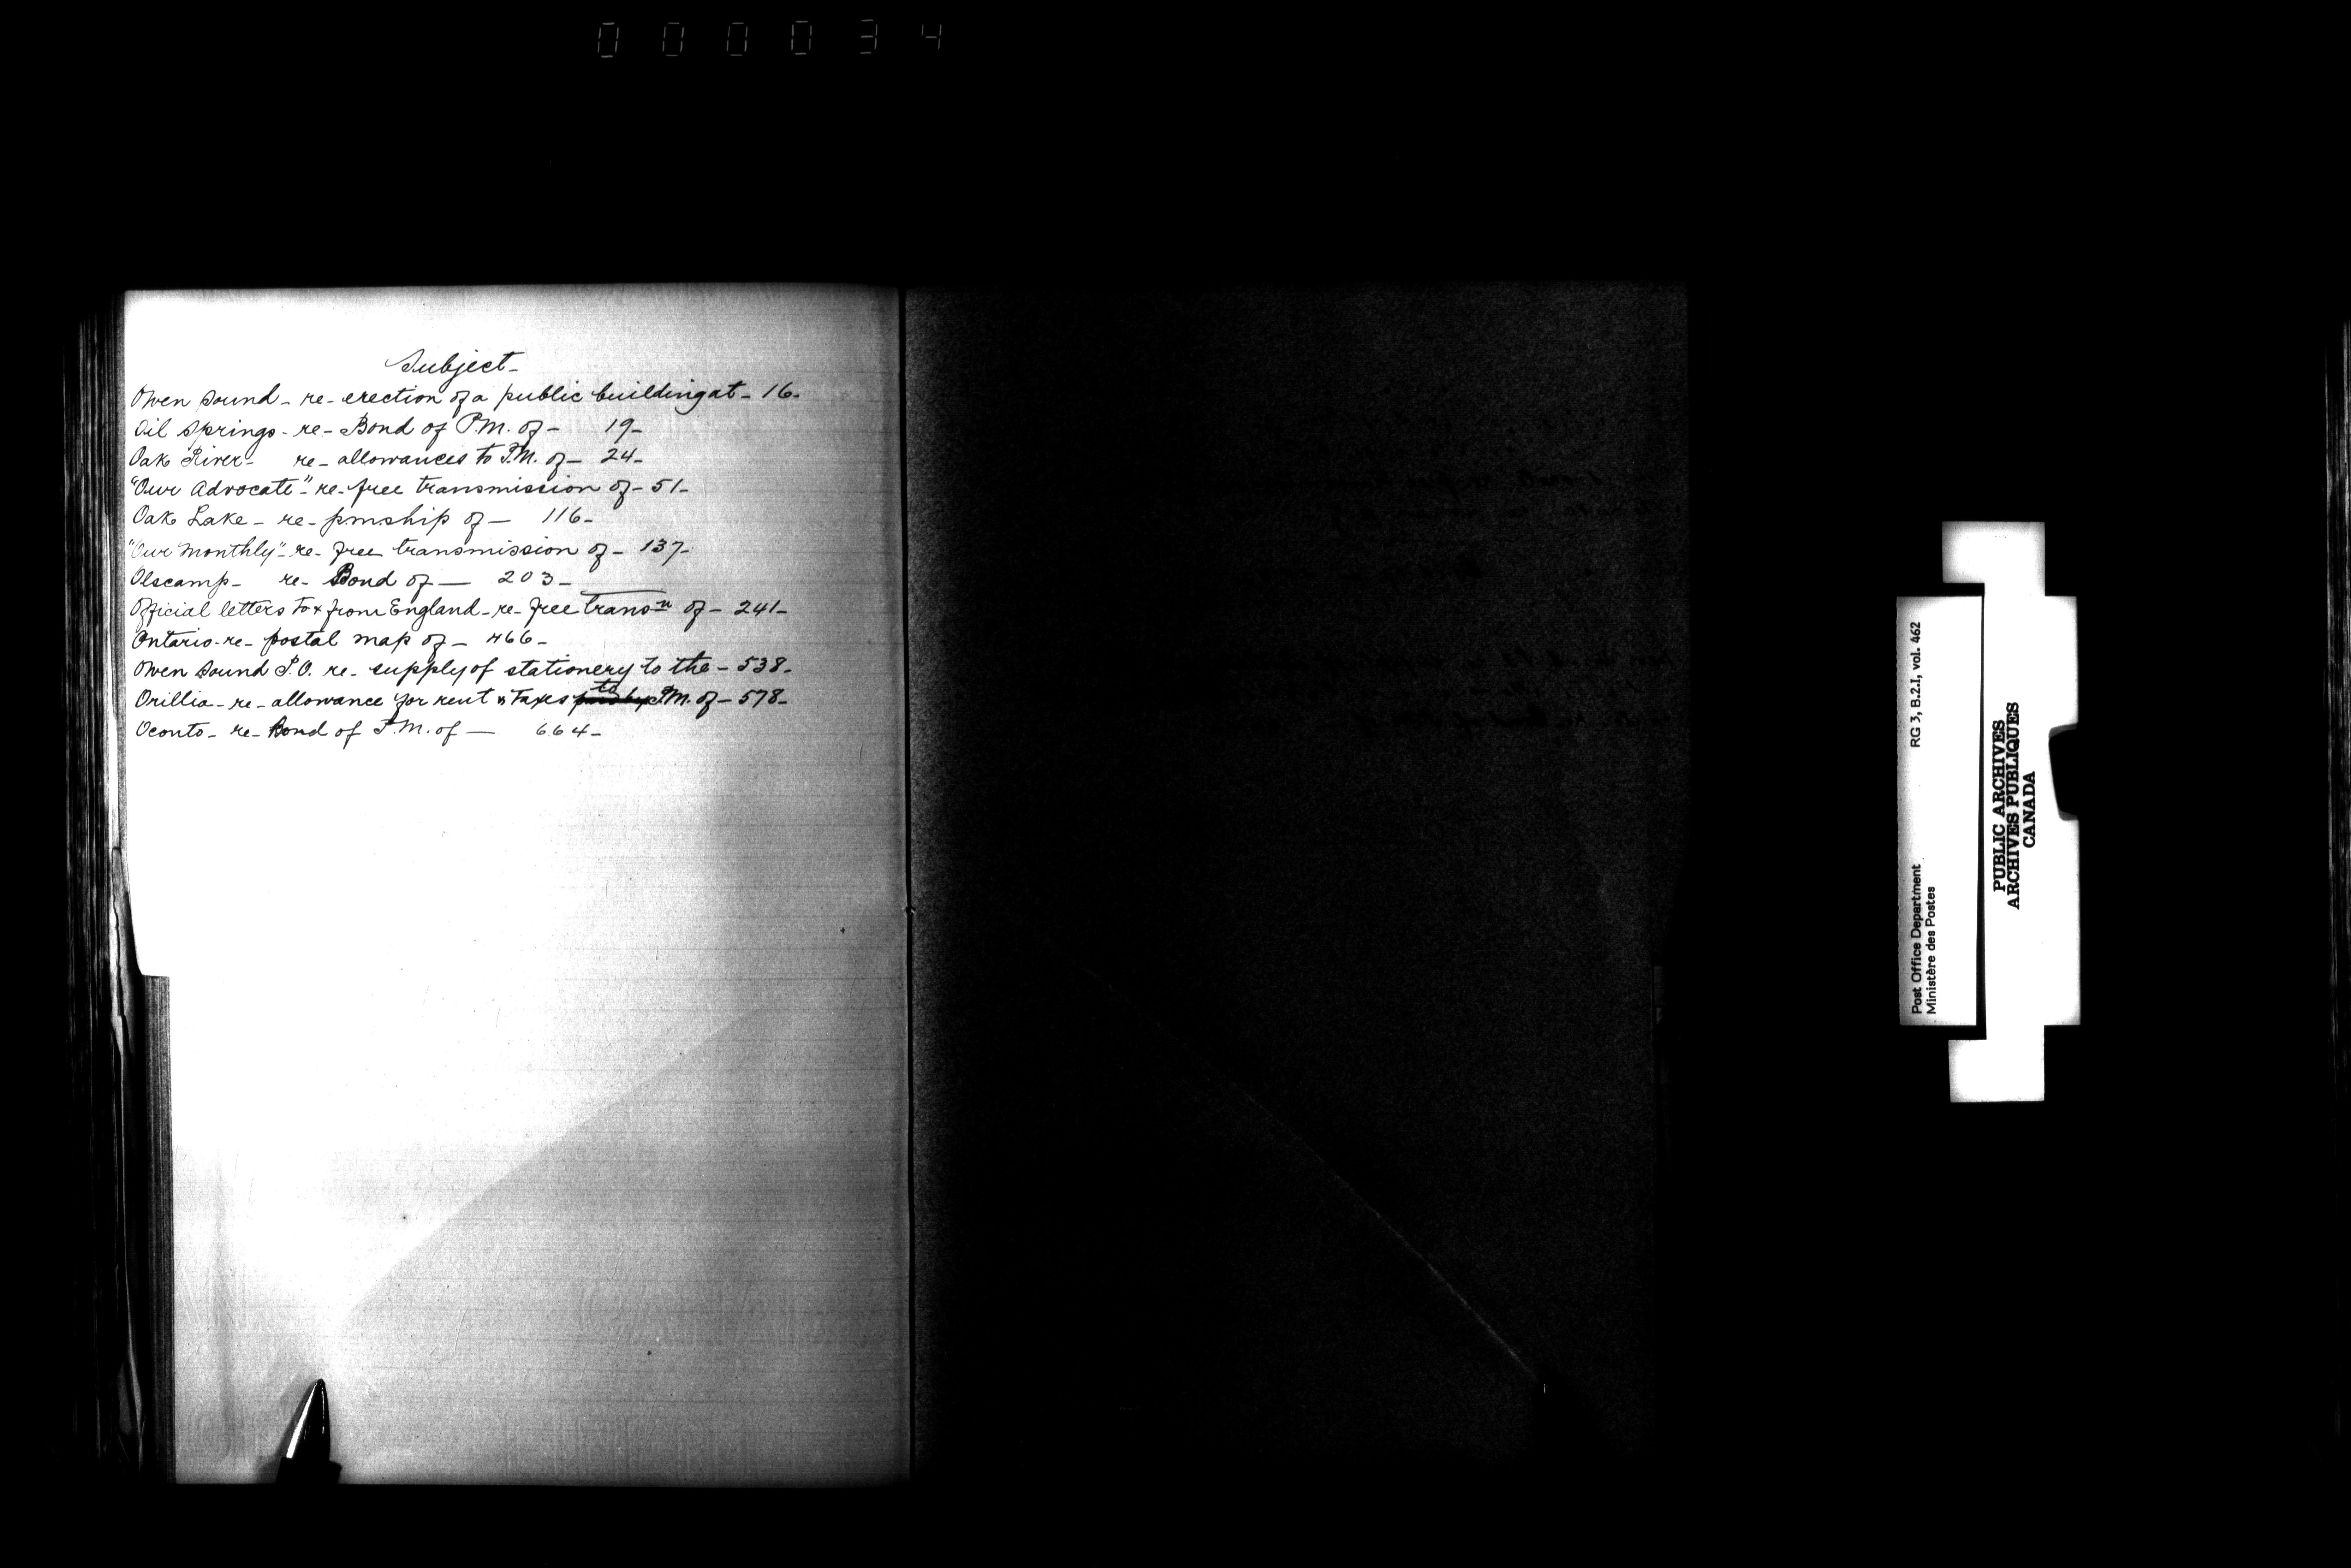 000034
Subject-
Owen Sound - re- erection of a public building at - 16-
Oil Springs - re - Bond of P.M. of - 19-
Oak River - re - allowances to P.M. of - 24-
"Our Advocate" - re - free transmission of - 51-
Oak Lake - re - pmship of - 116-
"Our Monthly" - re - free transmission of - 137-
Olscamp - re - Bond of - 203-
Official letters to & from England - re - free transn of - 241-
Ontario - re - postal map of - 466-
Owen Sound P.O. re - supply of stationery to the - 538-
Orillia - re - allowance for rent & taxes paid by to P.M. of - 578-
Oconto - re - Bond of P.M. of - 664-
RG 3, B.2.I, vol. 462
Post Office Department
Ministère des Postes
PUBLIC ARCHIVES
ARCHIVES PUBLIQUES
CANADA